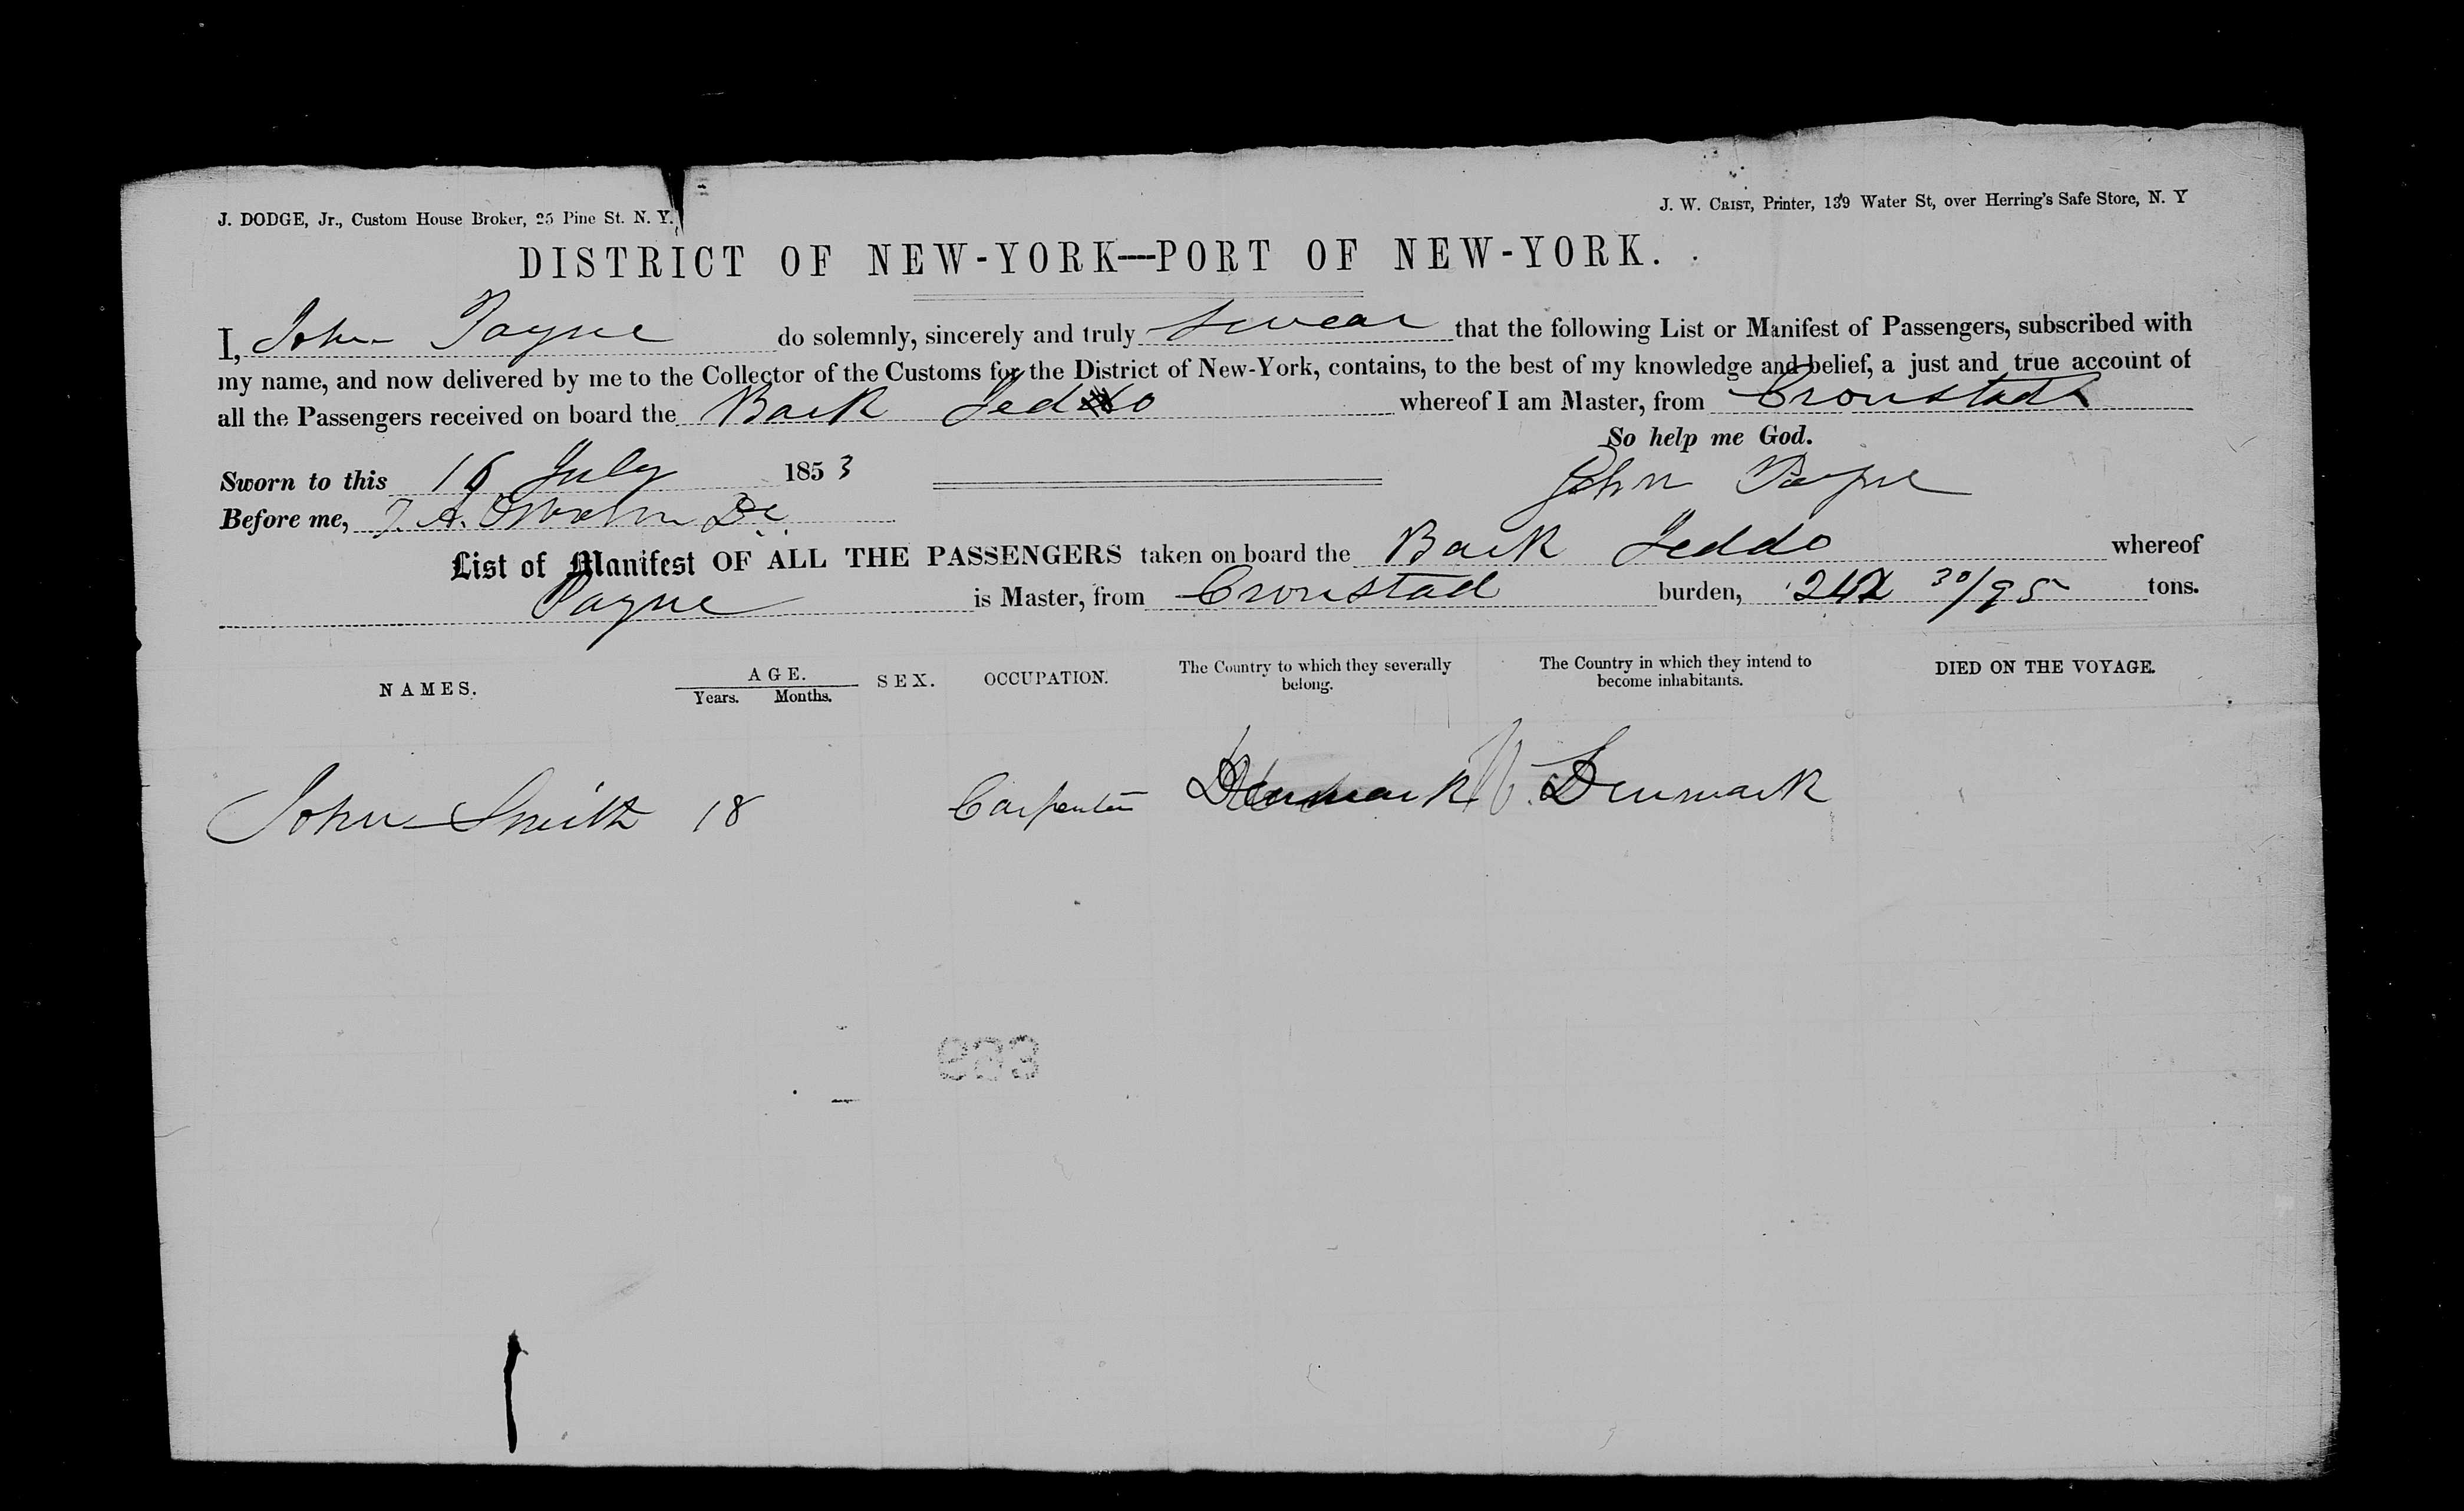 J. DODGE, Jr., Custom House Broker, 25 Pine St. N. Y.
J. W. CRIST, Printer, 139 Water St, over Herring's Safe Store, N. Y
DISTRICT OF NEW-YORK—PORT OF NEW-YORK.
I, John Payne do solemnly, sincerely and truly swear that the following List or Manifest of Passengers, subscribed with
my name, and now delivered by me to the Collector of the Customs for the District of New-York, contains, to the best of my knowledge and belief, a just and true account of
all the Passengers received on board the Bark Jeddo whereof I am Master, from Cronstadt
So help me God.
Sworn to this 16 July 1853
John Payne
Before me,
List of Manifest OF ALL THE PASSENGERS taken on board the Bark Jeddo whereof
Payne is Master, from Cronstad burden, 242 30/95 tons.
NAMES. AGE. Years. Months. SEX. OCCUPATION. The Country to which they severally belong. The Country in which they intend to become inhabitants. DIED ON THE VOYAGE.
John Smith 18 Carpenter Denmark Denmark